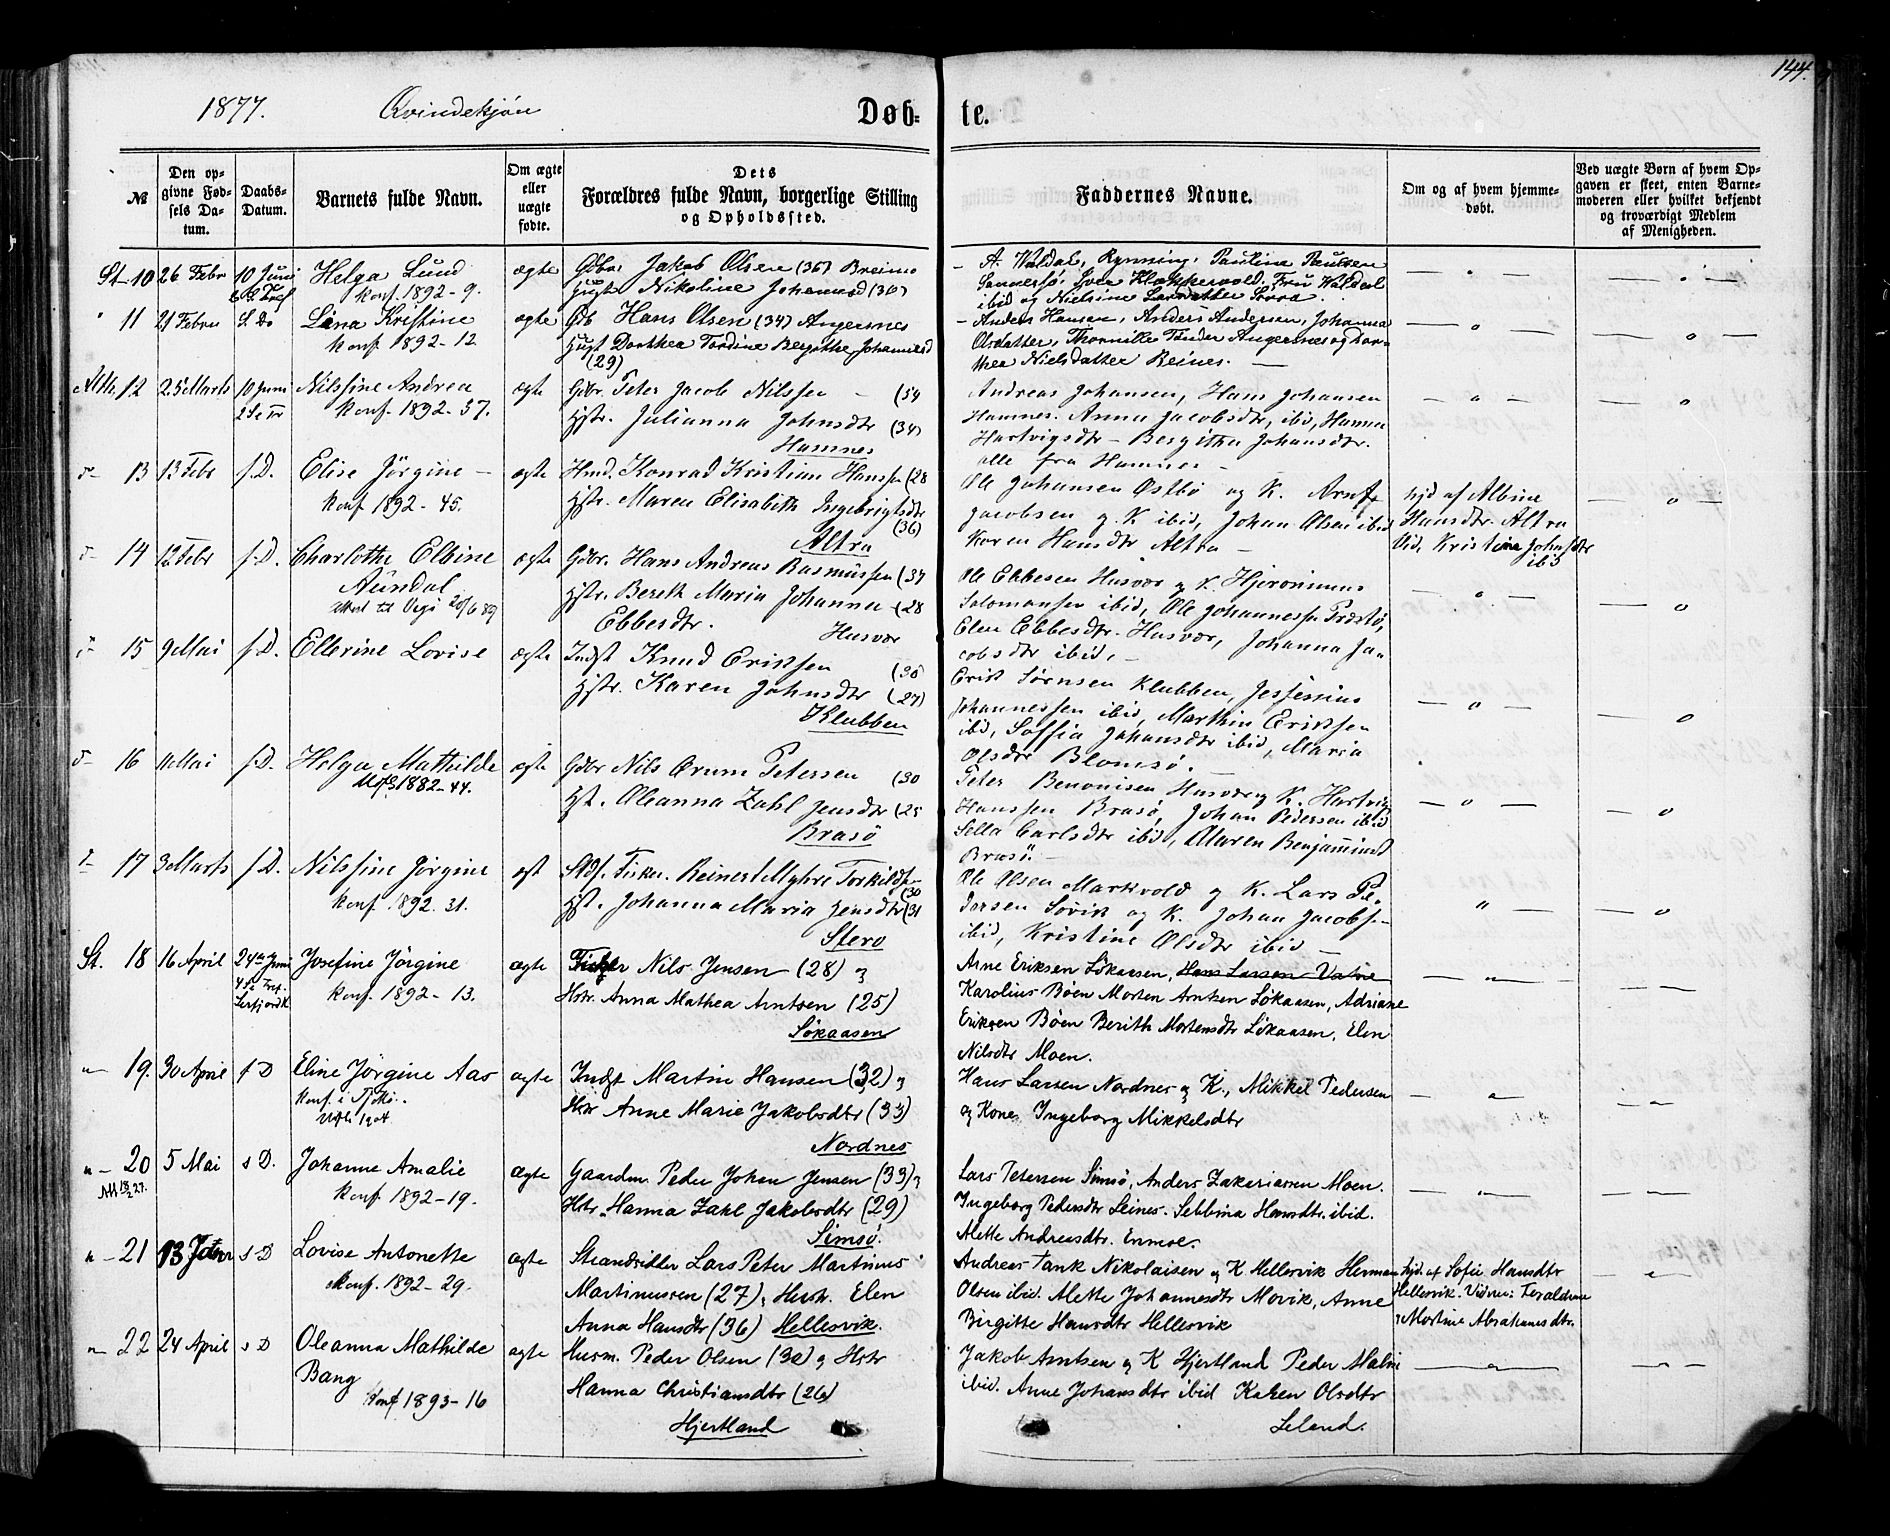 144.
1877. Qvindekjøn Døb- te.
№
Den opgivne Fødsels Datum.
Daabs-Datum.
Barnets fulde Navn.
Om ægte eller uægte fødte.
Dets Forældres fulde Navn, borgerlige Stilling og Opholdssted.
Faddernes Navne.
Om og af hvem hjemmedøbt.
Ved uægte Børn af hvem Opgaven er skeet, enten Barnemoderen eller hvilket bekjendt og troværdigt Medlem af Menigheden.
St. 10 26 Febr 10 Juni Helga Lund ægte Gdbr Jakob Olsen (36) Breimo
Konf. 1892-9. Hust Nikoline Johannesd (30)
A. Waldal, Rynning, Paulina Paulsen
Sannessø, Klokkervold, Fru Waldal
ibid og Nielsine Larsdatter
" 11 21 Februar S. Do Lina Kristine ægte Gb Hans Olsen (34) Angersnes
Konf. 1892-12 Hust Dorthea Tordine Bergithe Johannesd
(29)
Anders Hansen, Anders Andersen, Johanna
Olsdatter, Angersnes og Dor-
thea Nielsdatter Reines.
12 25 Marts 10 Juni Nilsine Andrea ægte Gdbr. Peter Jacob Nilssen (54
Konf. 1892-37. Hstr. Julianna Johnsdtr (34)
Hamnes
Andreas Johansen, Hans Johansen
Hamnes. Anna Jacobsdtr, ibid, Hanna
Hartvigsdtr - Bergitha Johansdtr.
alle fra Hamnes -
13 13 Febr s.D. Elise Jörgine - ægte Hmd. Konrad Kristian Hanssen (28
Konf 1892-45. Hstr. Maren Elisabeth Ingebrigtsdtr
(36)
Altra
Ole Johansen Østbö og K. Arnt
Jacobsen og K ibid, Johan Olsen ibid
Karen Hansdtr Altra -
hjd af Albine
Hansdtr. Altra
Vid, Kristina Johnsdtr
ibid
14 12 Febr s.D. Charlothe Elbine ægte Gdbr. Hans Andreas Rasmussen (37
Aündal Hstr. Bereth Maria Johanna (28
Attest til Vega 20/6 89 Ebbesdtr. Husvær
Ole Ebbesen Husvær og K. Hjeronimus
Salomonsen ibid, Ole Johannessen Præstö,
Elen Ebbesdtr. Husvær, Johanna Ja-
cobsdtr ibid, -
15 9 Mai s.D. Ellerine Lovise ægte Indst Knud Eriksen (30
Hstr. Karen Johnsdtr (27)
Klubben
Erik Sörnsen Klubben,
Johannessen ibid, Marthin Eriksen
ibid, Soffia Johansdtr ibid, Maria
Olsdtr Blomsö.
16 11 Mai s.D. Helga Mathilde ægte Gdbr Nils Ørum Petersen (30
1882-44. Hst. Oleanna Zahl Jensdtr (25
Brasö
Peter Benonisen Husvær og K. Hartvig
Hanssen Brasö, Johan Pedersen ibid
Sella Carlsdtr ibid, Maren Benjaminsd
Brasö. -
17 3 Marts s.D. Nilssine Jörgine ægt Reinert Myhre Torkilds-
(30
Konf. 1892. 31. Hst. Johanna Maria Jensdtr (31
Stero
Ole Olsen Markvold og K. Lars Pe-
dersen Sövik og K. Johan Jacobs-
ibid, Kristine Olsdtr ibid -
St. 18 16 April 24de Juni Josefine Jörgine ægte Fisker Nils Jensen (28) og
Konf. 1892-13. Hstr. Anna Mathea Arntsen (25)
Søkaasen
Arne Eriksen Søkaasen, Hans Larsen Valne
Karolius Bøen Morten Arntsen Søkaasen, Adriane
Eriksen Bøen Berith Mortensdtr Søkaasen, Elen
Nilsdtr Moen.
" 19. 30 April s D Eline Jörgine Aas ægte Indst Martin Hansen (32) og
Konf. i Tjøttö. Hstr Anne Marie Jakobsdtr (33)
1904 Nordnes
Hans Larsen Nordnes og K., Mikkel Pedersen
og Kone, Ingeborg Mikkelsdtr
" 20 5 Mai s D. Johanne Amalie ægte Gaardm. Peder Johan Jensen (33) og
Konf. 1892-19. Hstr. Hanna Zahl Jakobsdtr (29)
Simsø.
Lars Petersen Simsø, Anders Zakariassen Moen.
Ingeborg Pedersdtr Leines. Sebbina Hansdtr. ibid.
Mette Andreasdtr. Enmoe.
" 21 13 s D Lovise Antonette ægte Strandsidder Lars Peter Martinus
Konf. 1892-29. Martinussen (27), Hustr. Elen
Anna Hansdtr (36) Hellesvik.
Andreas Tank Nikolaisen og K Hellesvik Herman
Olsen ibid. Mette Johannesdtr Movik, Anne
Birgitte Hansdtr Hellesvik
hjd. af Sofie Hansdtr
Hellesvik. Vidner: Forældrene
og Martine Abrahamsdtr.
" 22 24 April s D Oleanna Mathilde ægte Husm. Peder Olsen (30) og Hstr
Bang Hanna Christiansdtr (26)
Konf 1893-16 Hjertland
Jakob Arntsen og K Hjertland Peder Malm
ibid. Anne Johansdtr ibid Karen Olsdtr
Leland.